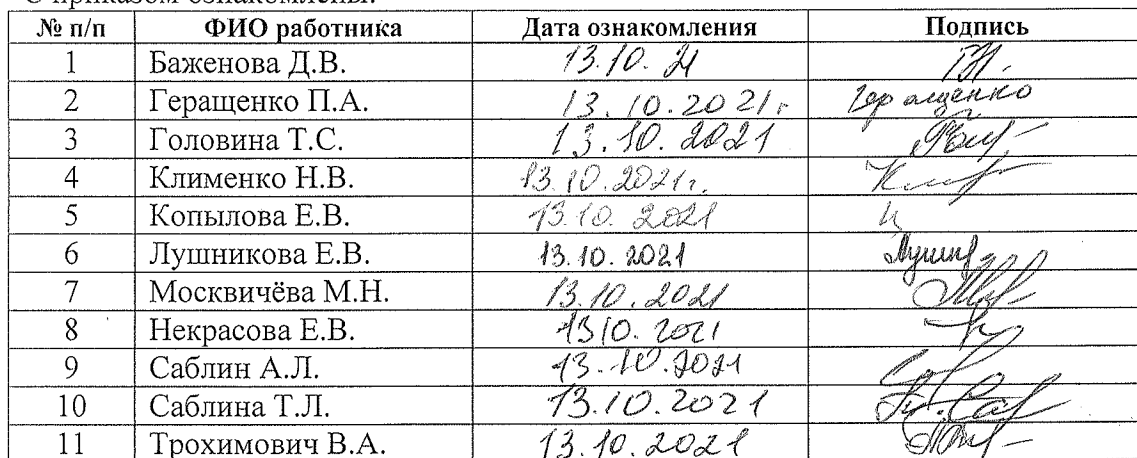 С приказом ознакомлены:
№ п/п ФИО работника Дата ознакомления Подпись
1 Баженова Д.В. 13.10.21
2 Геращенко П.А. 13.10.2021г Геращенко
3 Головина Т.С. 13.10.2021
4 Клименко Н.В. 13.10.2021г.
5 Копылова Е.В. 13.10.2021
6 Лушникова Е.В. 13.10.2021
7 Москвичёва М.Н. 13.10.2021
8 Некрасова Е.В. 1310.2021
9 Саблин А.Л. 13.10.2021
10 Саблина Т.Л. 13.10.2021
11 Трохимович В.А. 13.10.2021